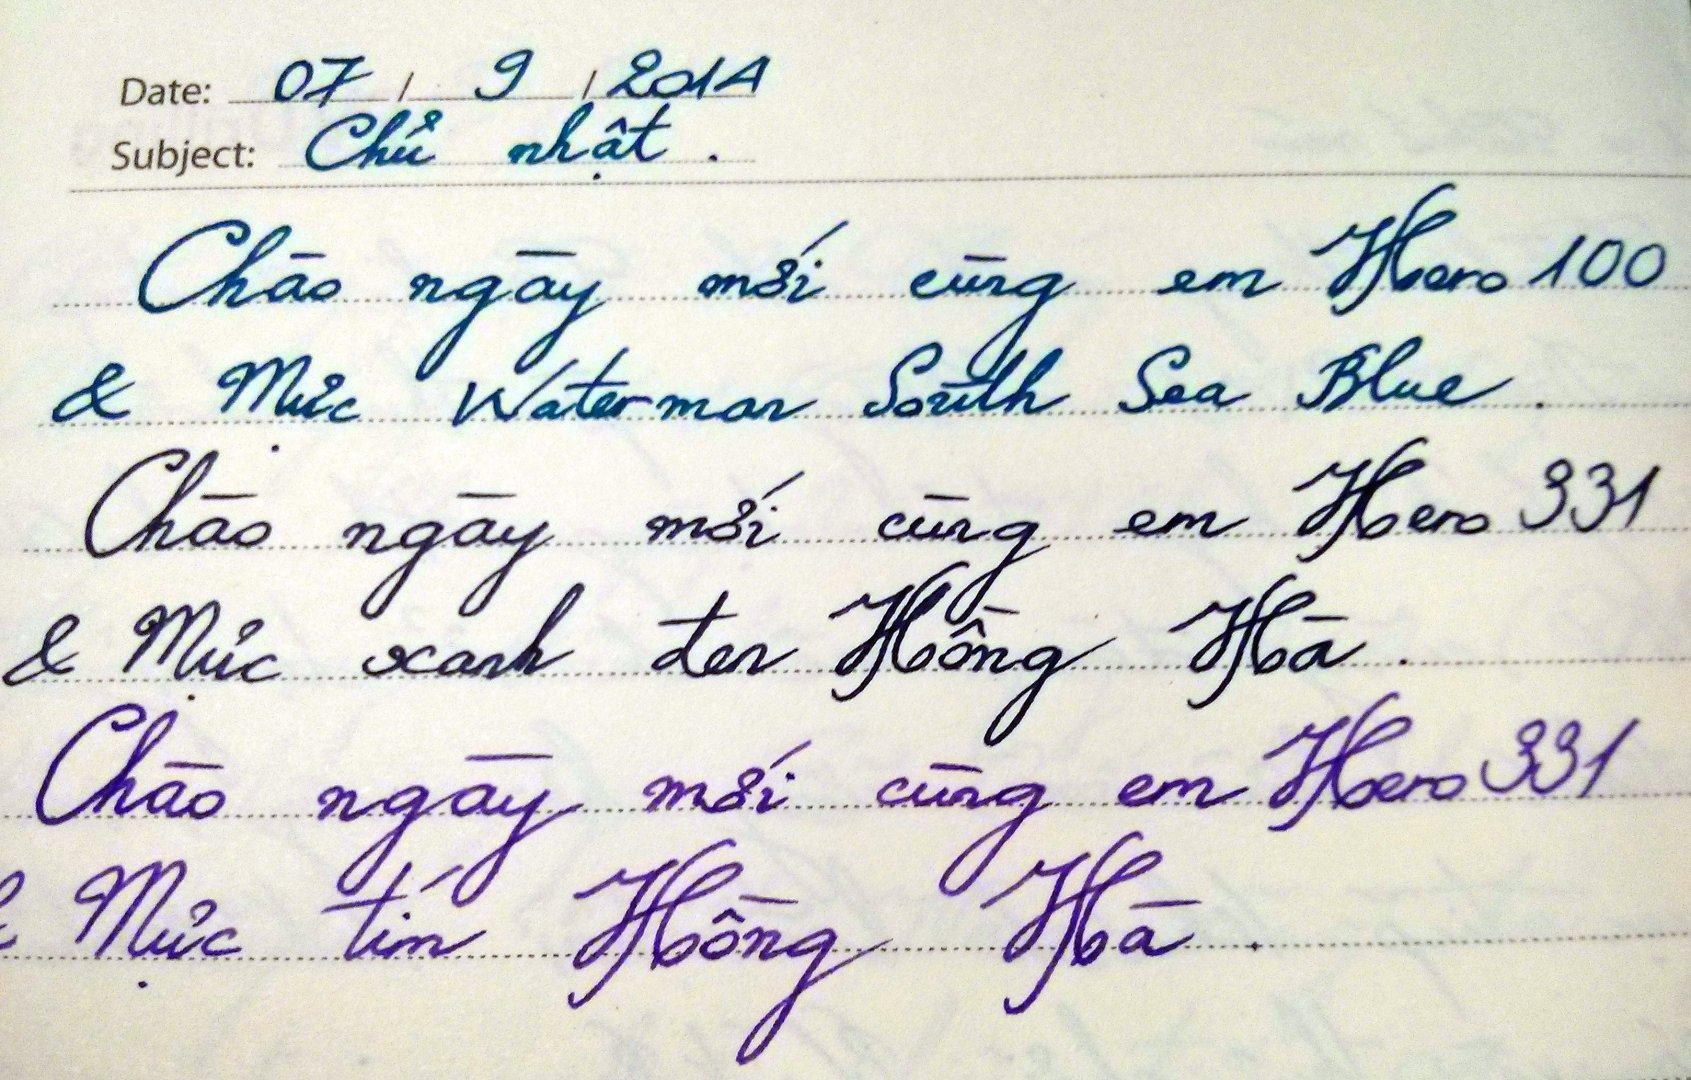 Date: 07 / 9 / 2014
Subject: Chủ nhật.
Chào ngày mới cùng em Hero 100
& Mực Waterman South Sea Blue.
Chào ngày mới cùng em Hero 331
& Mực xanh đen Hồng Hà.
Chào ngày mới cùng em Hero 331
& Mực tím Hồng Hà.